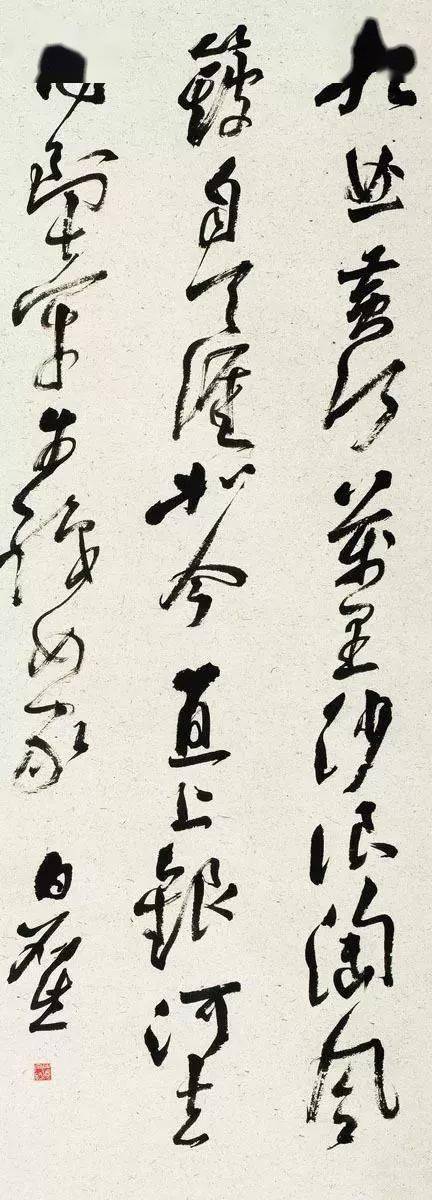 九曲黄河萬里沙浪淘风
簸自天涯如今直上銀河去
同到牽牛織女家 白砥